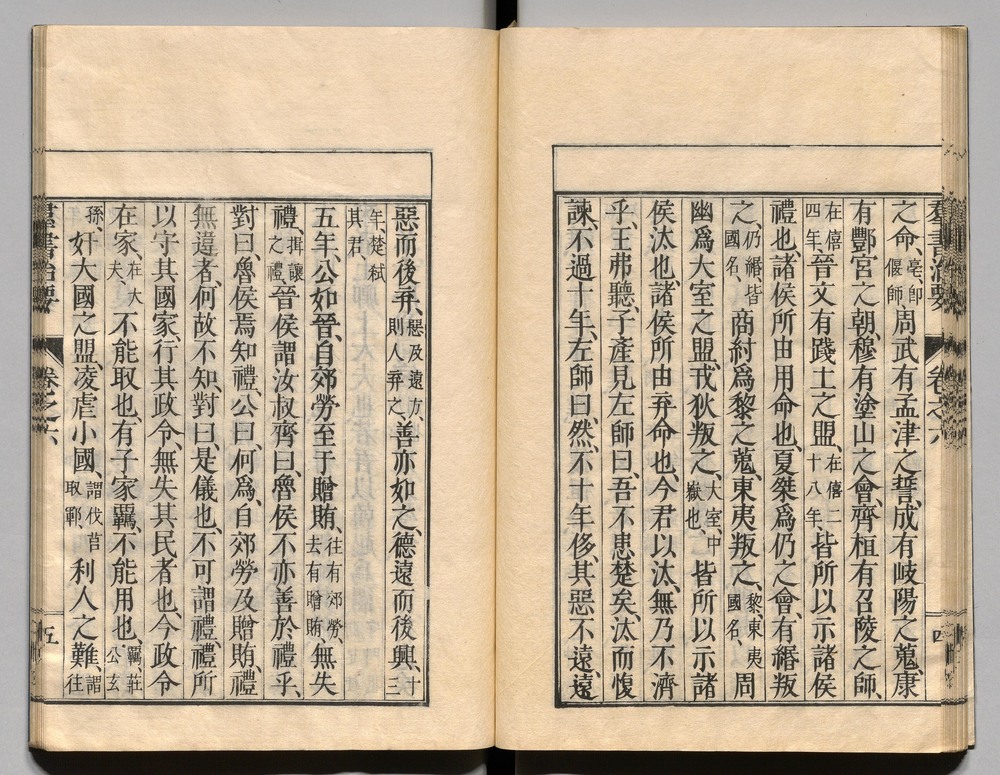 羣書治要 卷之六 四
之命、亳、即偃師周武有孟津之誓、成有岐陽之蒐、康
有酆宮之朝、穆有塗山之會、齊桓有召陵之師、
在僖四年、晉文有踐土之盟、在僖二十八年、皆所以示諸侯
禮也、諸侯所由用命也、夏桀爲仍之會、有緡叛
之、仍緡、皆國名、商紂爲黎之蒐、東夷叛之、黎、東夷國名、周
幽爲大室之盟、戎狄叛之、大室、中嶽也、皆所以示諸
侯汰也、諸侯所由弃命也、今君以汰、無乃不濟
乎、王弗聽、子產見左師曰、吾不患楚矣、汰而愎
諫、不過十年、左師曰、然、不十年侈、其惡不遠、遠
惡而後弃、惡及遠方、則人弃之、善亦如之、德遠而後興、十三
年、楚弒其君、
五年、公如晉、自郊勞至于贈賄、往有郊勞、去有贈賄、無失
禮、揖讓之禮、晉侯謂汝叔齊曰、魯侯不亦善於禮乎、
對曰、魯侯焉知禮、公曰、何爲、自郊勞及贈賄、禮
無違者、何故不知、對曰、是儀也、不可謂禮、禮所
以守其國家、行其政令、無失其民者也、今政令
在家、在大夫、不能取也、有子家羈、不能用也、羈、莊公玄
孫、奸大國之盟、凌虐小國、謂伐莒取鄆、利人之難、謂往
羣書治要 卷之六 五